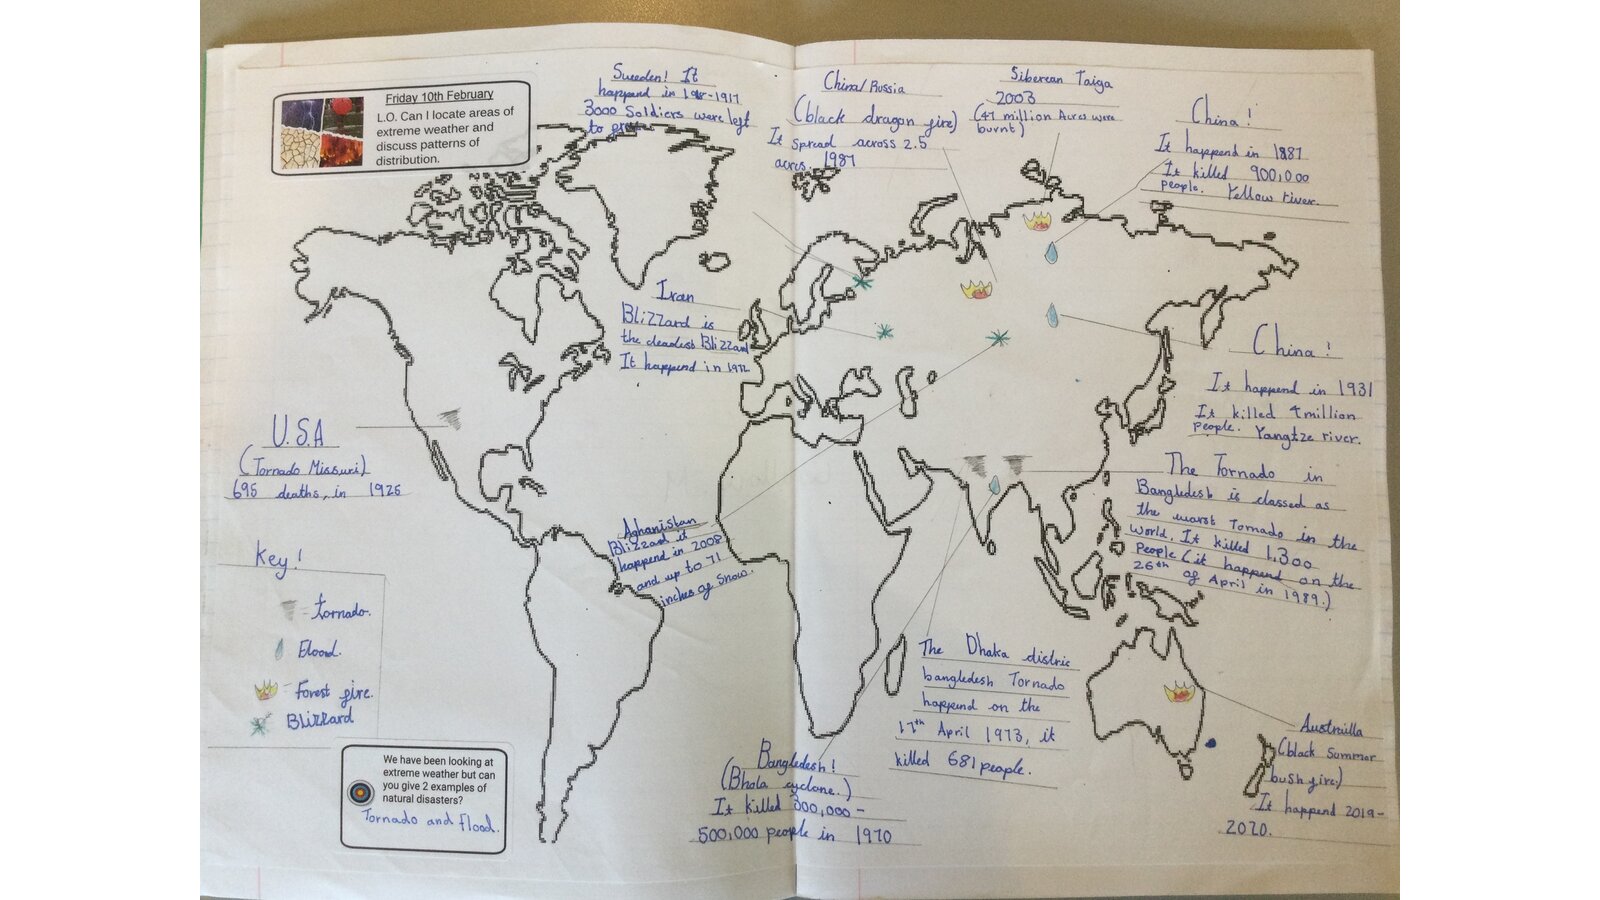 Friday 10th February
L.O. Can I locate areas of
extreme weather and
discuss patterns of
distribution.
Sweeden! It
happend in -1917
3000 Soldiers were left
to
China/Russia
(black dragon fire)
It spread across 2.5
acres. 1987
Siberean Taiga
2003
(47 million Acres were
burnt)
China!
It happend in 1887
It killed 900,000
people. Yellow river.
Iran
Blizzard is
the deadest Blizzard
It happend in 1972
China!
It happend in 1931
It killed 4 million
people. Yangtze river.
U.S.A
(Tornado Missuri)
695 deaths, in 1925
The Tornado in
Bangledesh is classed as
the worst Tornado in the
world. It killed 1,300
people (it happend on the
26th of April in 1989.)
Aghanistan
Blizzard it
happend in 2008
and up to 71
inches of snow.
Key!
tornado.
Flood.
Forest fire.
Blizzard
The Dhaka distric
bangledesh Tornado
happend on the
17th April 1973, it
killed 681 people.
Austrailla
(black summer
bush fire)
It happend 2019-
2020.
Bangledesh!
(Bhola cyclone.)
It killed 300,000-
500,000 people in 1970
We have been looking at
extreme weather but can
you give 2 examples of
natural disasters?
Tornado and flood.